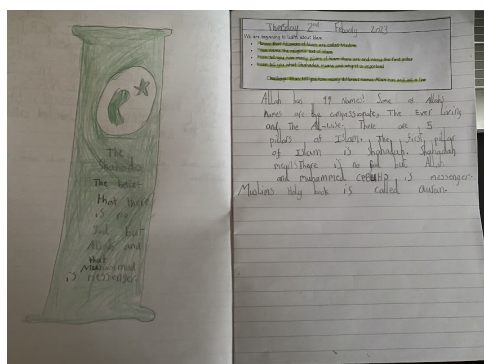 The
Shahada
The belief
that there
is no
God but
Allah and
that
Muhammad
is messenger.
Thursday 2nd February 2023
We are beginning to learn about Islam.
Know that followers of Islam are called Muslims
Can name the religious text of Islam
Allah has 99 names! Some of Allahs
names are the compassionate, The Ever loving
and The All-wise. There are 5
pillars of Islam. The first pillar
of Islam is Shahadah. Shahadah
means There is no god but Allah
and muhammed (PBUH) is messenger.
Muslims Holy book is called Quran.